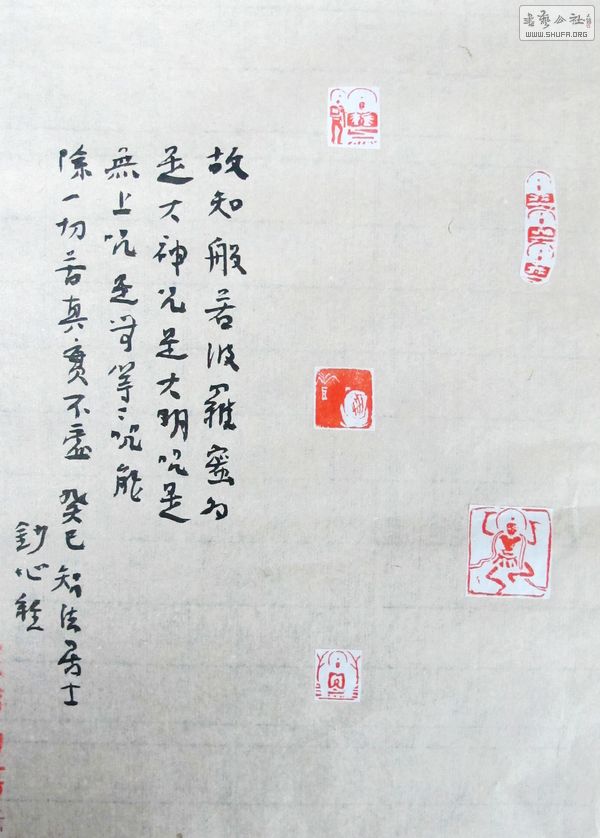 書藝公社
WWW.SHUFA.ORG
故知般若波羅蜜多
是大神咒是大明呪是
無上呪是無等〻呪能
除一切苦真實不虛 癸巳 智法居士
鈔心經